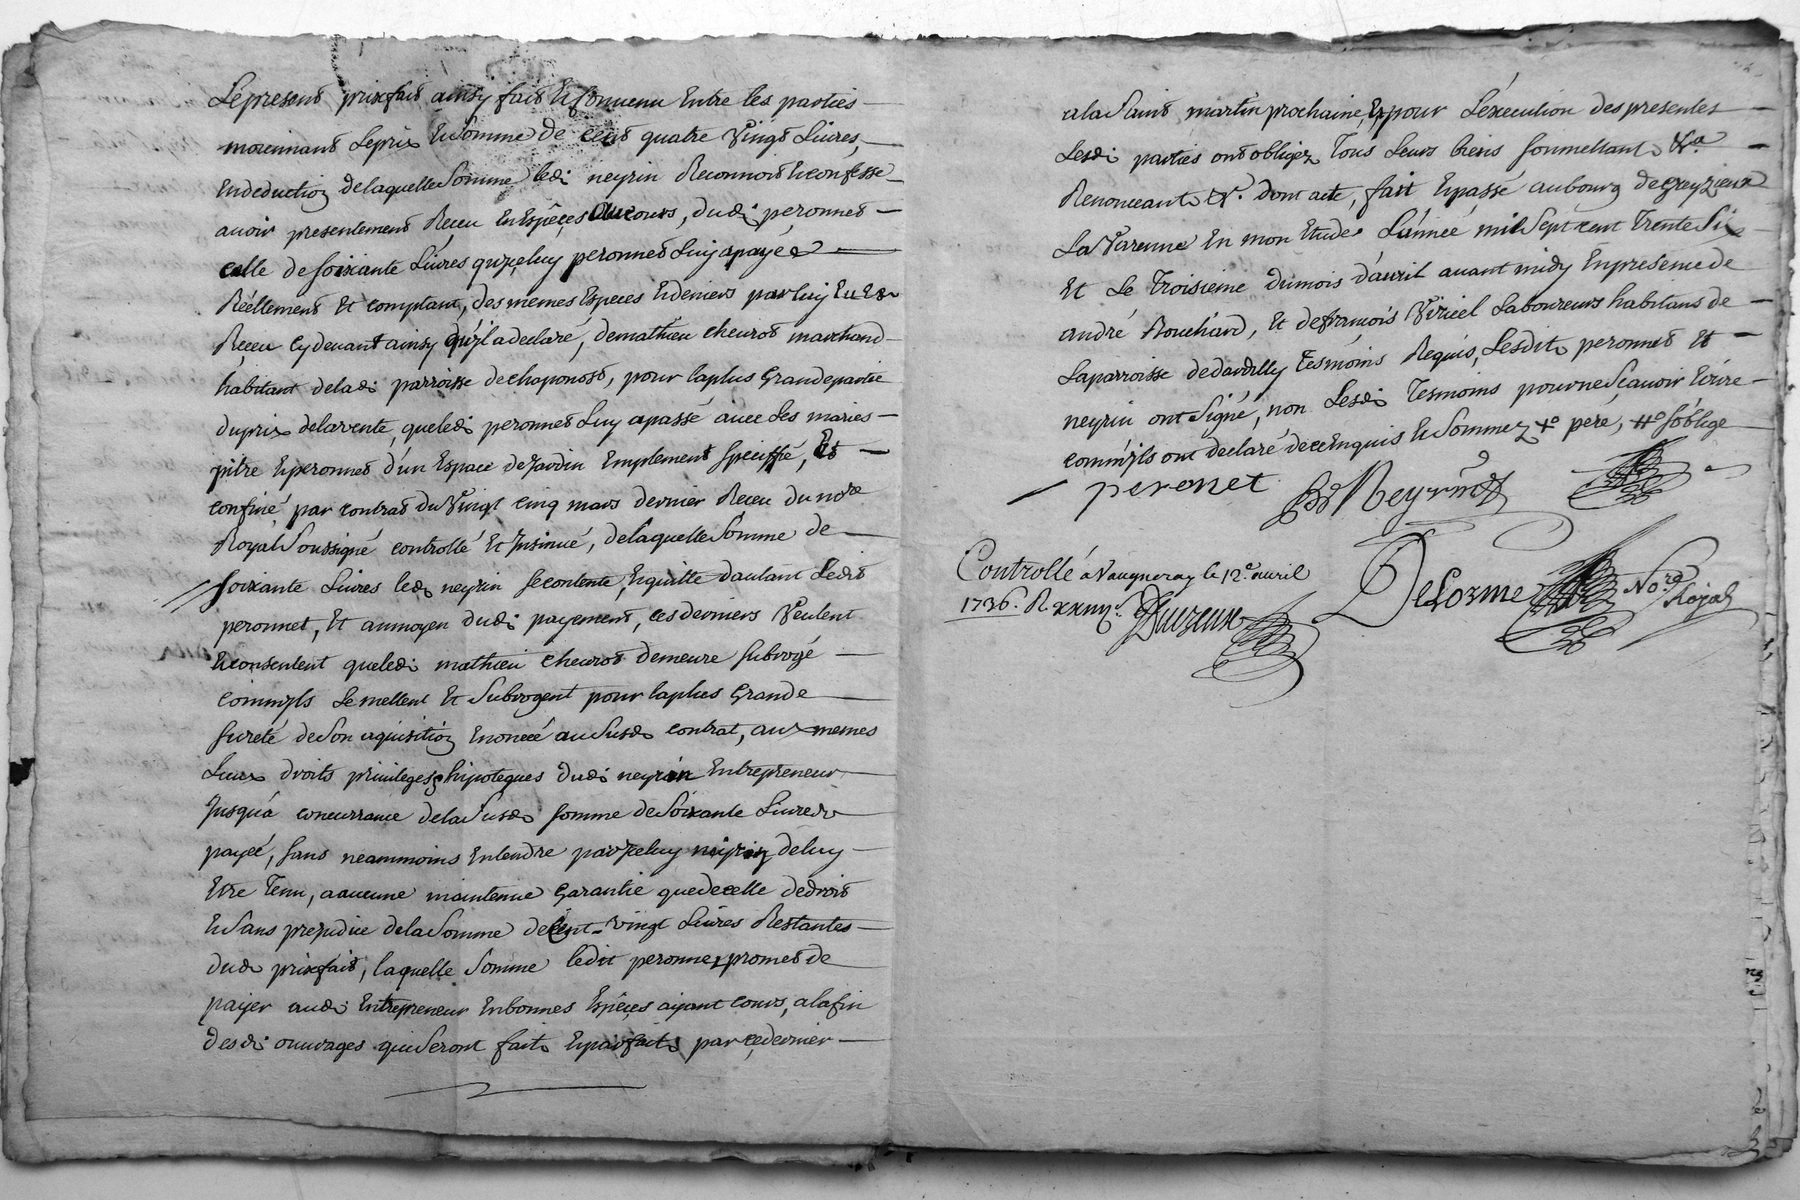 Le present prixfait ainsy fait & convenu Entre les parties
moiennant Le prix & Somme de cent quatre Vingt Livres,
En deduction de laquelle Somme led: neyrin Reconnoit & confesse
avoir presentement Receu En Espèces Du cours, dud: peronnet
celle de soixante Livres qu'iceluy peronnet Luy a payée
Réellement Et comptant, des memes Especes & deniers par luy
Receu cy devant ainsy qu'il a declaré, de mathieu chevrot marchand
habitant de lad: parroisse de chaponost, pour la plus Grande partie
du prix de la vente, que led: peronnet Luy a passé avec Les maries
pitre & peronnet d'un Espace de Jardin Emplement speciffié, Et
confiné par contrat du Vingt cinq mars dernier Receu du no.re
Royal Soussigné controllé Et Insinué, de laquelle Somme de
soixante Livres led: neyrin se contente, & quitte d'autant Ledit
peronnet, Et au moyen dud: payement, ces derniers Veulent
& consentent que led: mathieu chevrot demeure subrogé
comm'ils Le mettent Et Subrogent pour la plus Grande
sureté de Son aquisition Enoncé au Susd: contrat, aux memes
Lieux droits privileges & hipoteques dud: neyrin Entrepreneur
Jusqu'a concurrance de la Susd: somme de Soixante Livres
payée, sans neammoins Entendre par Iceluy neyrin de luy
Etre Tenu, a aucune maintenue Garantie que de celle de droit
& Sans prejudice de la Somme de Cent-Vingt Livres Restantes
dud: prixfait, laquelle Somme ledit peronnet promet de
payer aud: Entrepreneur En bonnes Espèces aiyant cours, a la fin
desd: ouvrages qui Seront faits & parfaits par ce dernier
a la Saint martin prochaine, & pour L'éxecution des presentes
Lesd: parties ont obligez Tous Leurs biens soumettant &.a
Renonceant &.a dont acte, fait & passé au bourg de Greyzieux
La Varenne En mon Etude L'année mil Sept cent Trente Six
Et Le Troisieme du mois d'avril avant midy En presence de
andré Bouchard, Et de françois Viricel Laboureurs habitans de
La parroisse de davezilly Tesmoins Requis, Lesdits peronnet Et
neyrin ont Signé, non Lesd: Tesmoins pour ne Sçavoir Ecrire
comm'ils ont declaré de ce Enquis & Sommez père, s'oblige
peronet
Neyrin
Controllé á Vaugneray le 12.e avril
1736. R.
DeLorme No.re Royal